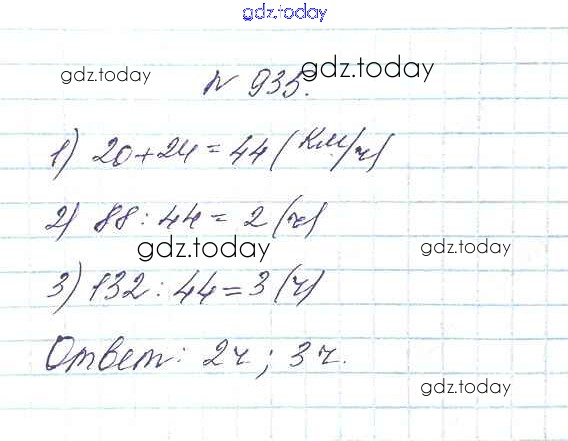 gdz.today
gdz.today № 935. gdz.today
1) 20+24=44 (км/ч)
2) 88:44=2 (ч)
gdz.today gdz.today
3) 132:44=3 (ч)
Ответ: 2ч; 3ч.
gdz.today